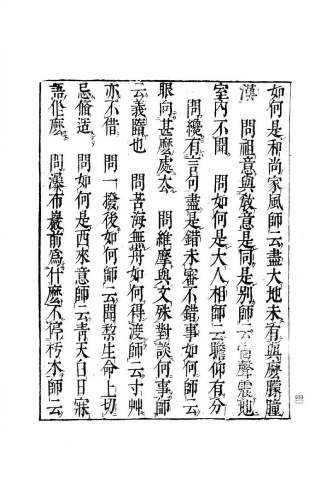 如何是和尚家風師云盡大地未有與麽朦朣
漢　問祖意與敎意是同是別師云雷聲震地
室內不聞　問如何是大人相師云瞻仰有分
問纔有言句盡是錯未審不錯事如何師云
眼向甚麽處去　問維摩與文殊對談何事師
云義隨也　問苦海無舟如何得渡師云寸艸
亦不借　問一撥後如何師云闍黎生命上切
忌脩造　問如何是西來意師云靑天白日寐
語作麽　問瀑布巖前爲什麽不停朽木師云